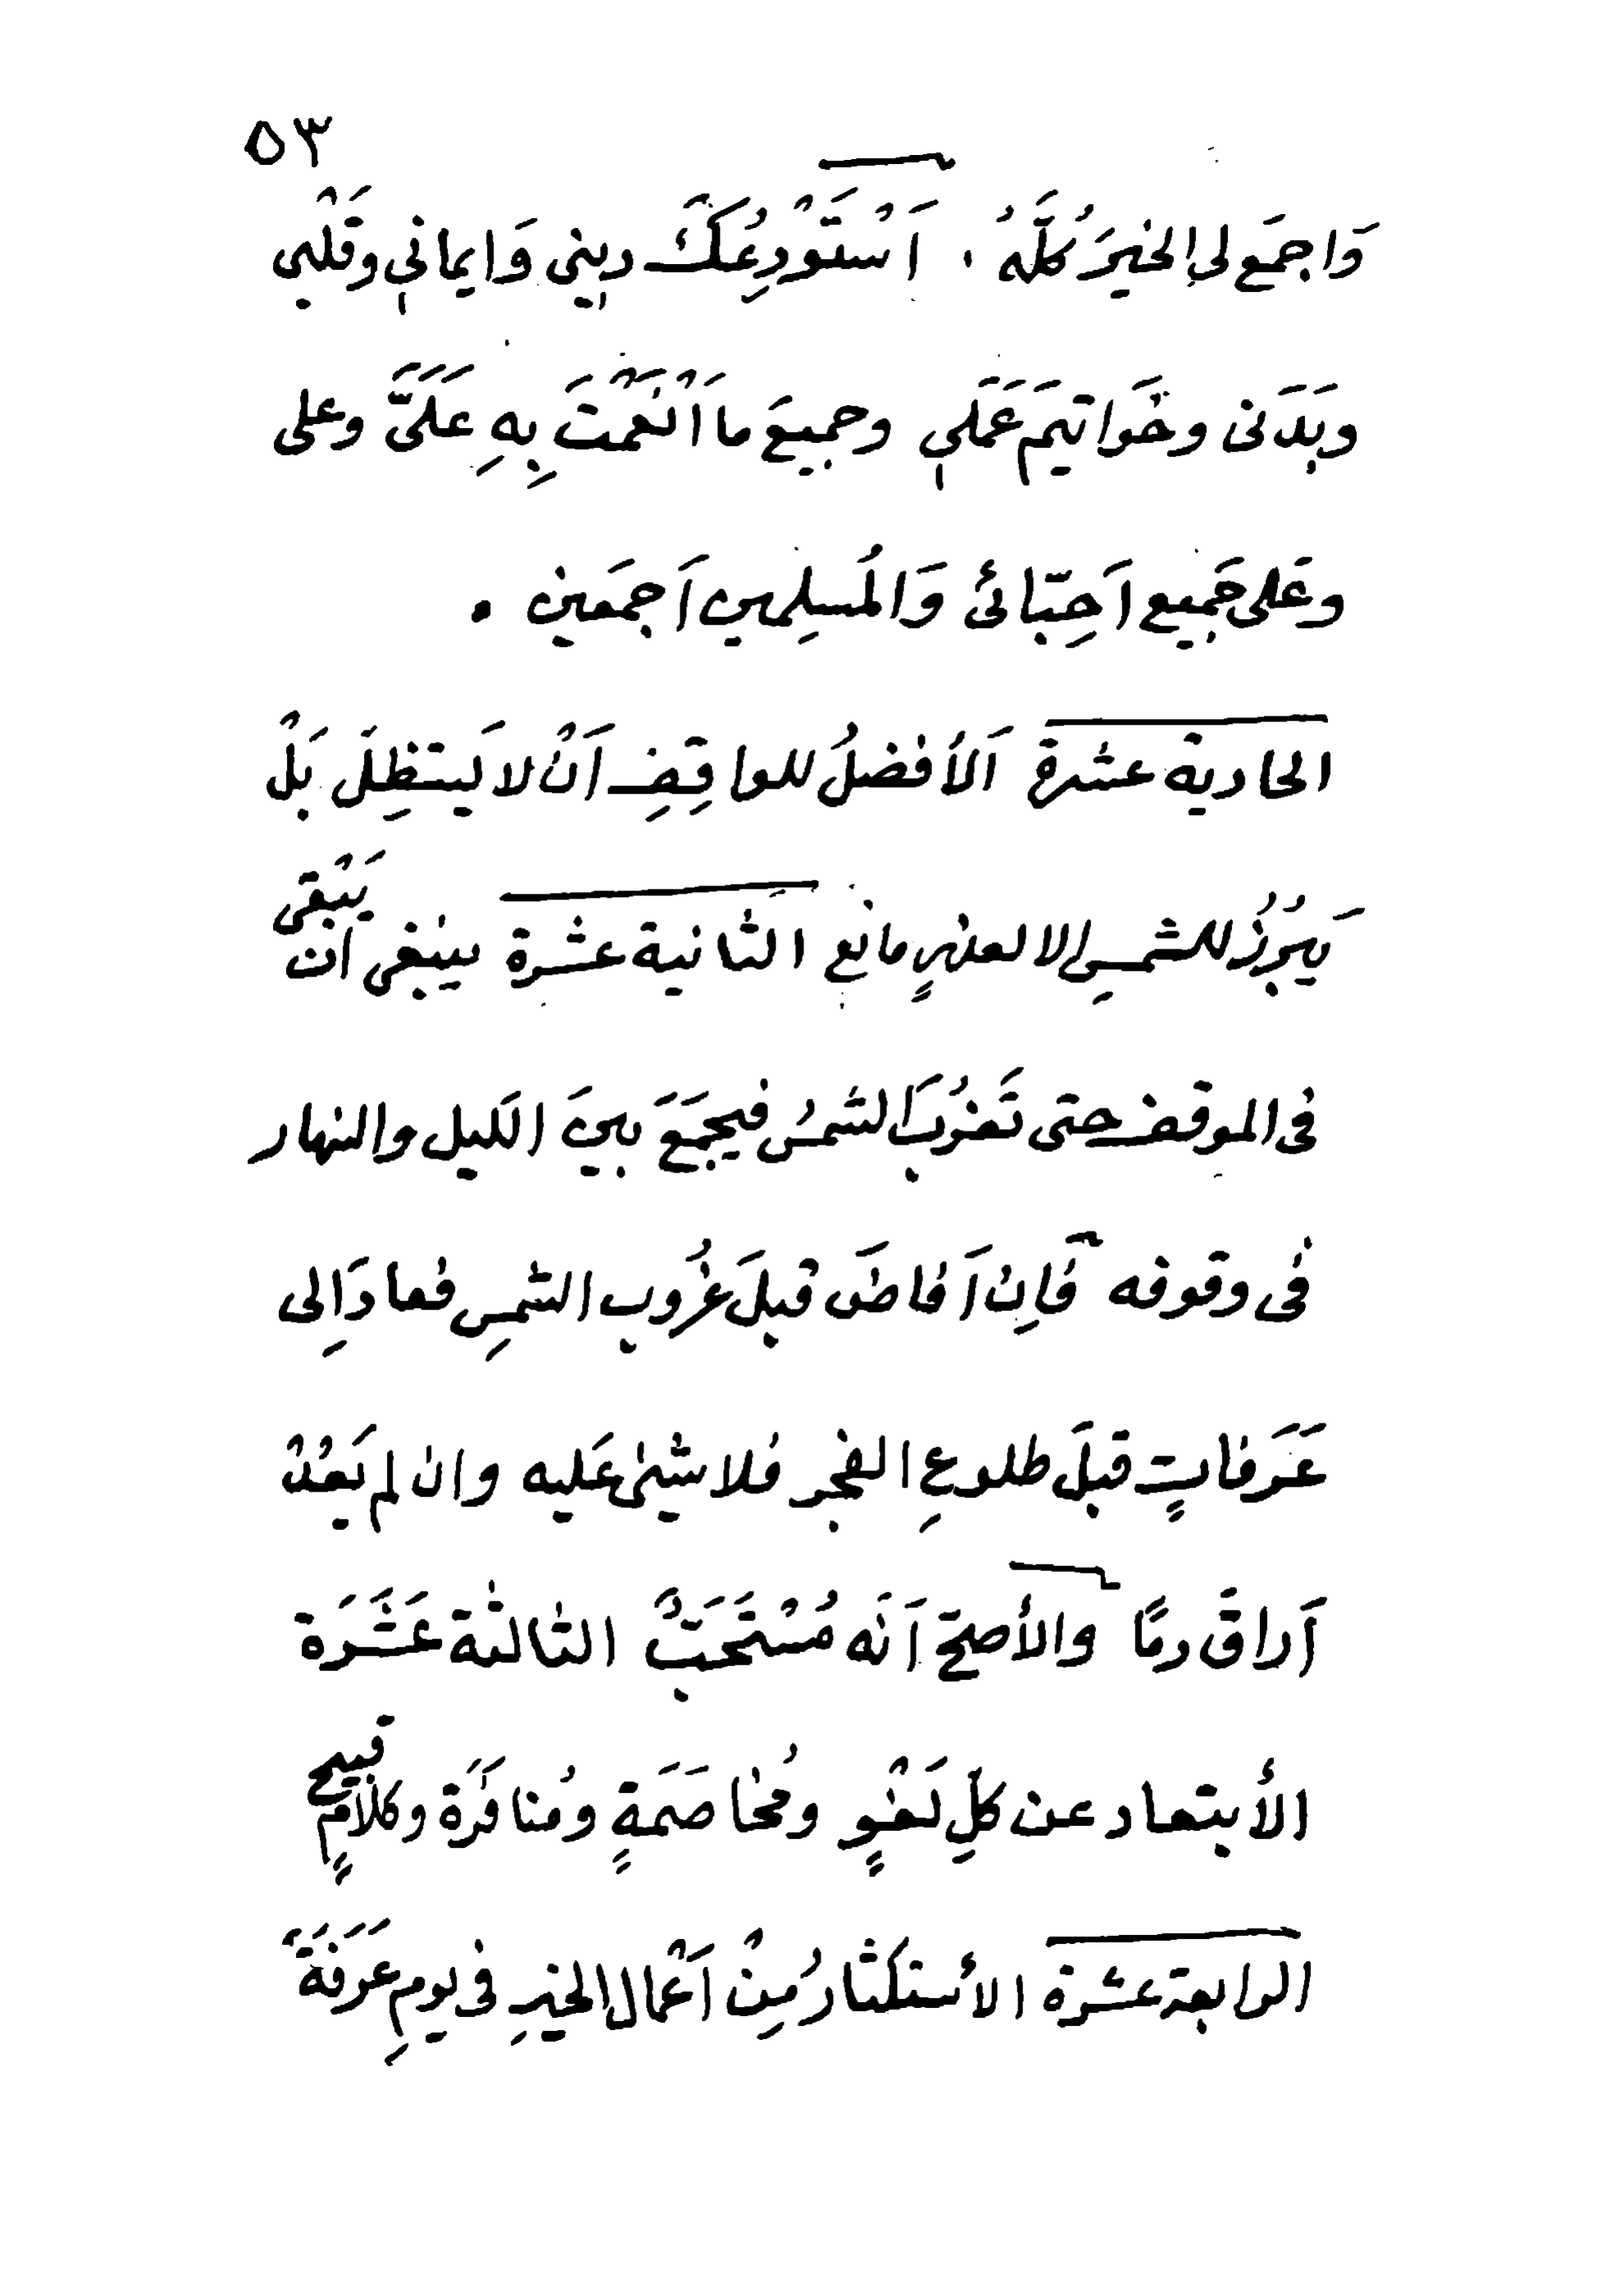 ٥٣
وَاجمَع لي الخيرَ كُلَّهُ . اَسْتَوْدِعُكَ ديني وَايماني وقَلْبي
وبَدَنى وخَواتيمَ عَمَلي وجميعَ ما اَنْعَمْتَ بِهِ عَلَىَّ وعلى
وعَلى جَميع اَحِبّائى وَالمُسلِمين اَجمَعين .
الحادية عشرة اَلأفضلُ للواقِفِ اَنْ لا يَستظِلَ بَلْ
يَبرُزُ للشمسِ الا لعذرٍ مانع الثانية عشرة ينبغى ان يَبْقى
فى الموقف حتى تَغرُبَ الشمسُ فيجمَعَ بينَ الليل والنهار
فى وقوفه فَاِن اَفاضَ قبلَ غُروبِ الشمسِ فعادَ اِلى
عَرَفاتٍ قبلَ طلوعِ الفجر فلا شيئ عَليه وان لم يَعُدْ
اَراقَ دمًا والأصحّ اَنَه مُسْتَحَبٌّ الثالثة عَشَرَة
الأبتعاد عن كلِ لَغْوٍ ومُخاصَمَةٍ ومُنافَرَة وكلامٍ قبيح
الرابعة عشرة الأستكثارُ مِنْ اَعْمال الخيرِ فى يومِ عَرَفَةَ